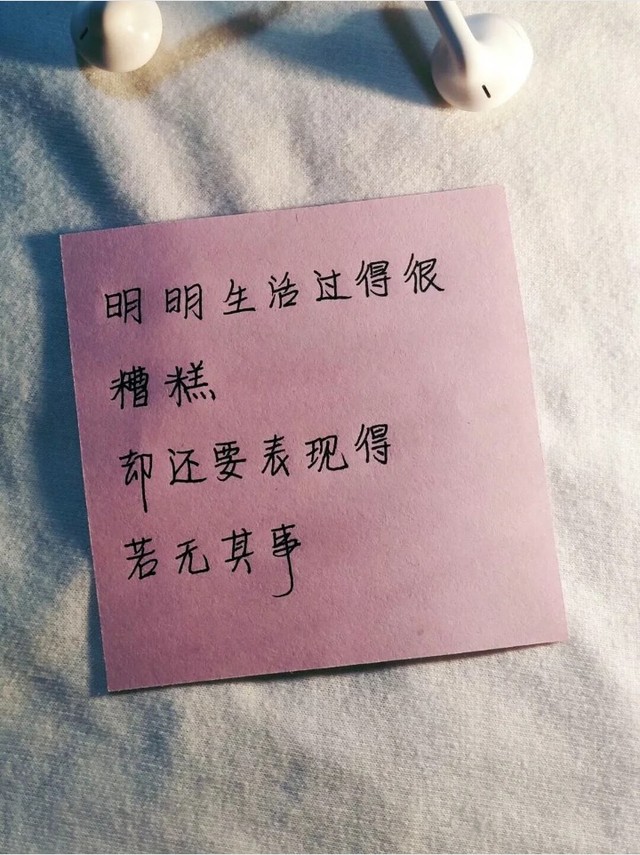 明明生活过得很
糟糕
却还要表现得
若无其事